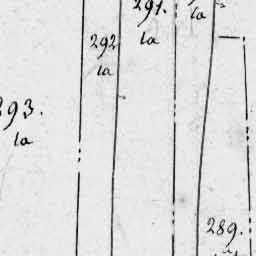 291.
la
la
292
la
293.
la
289.